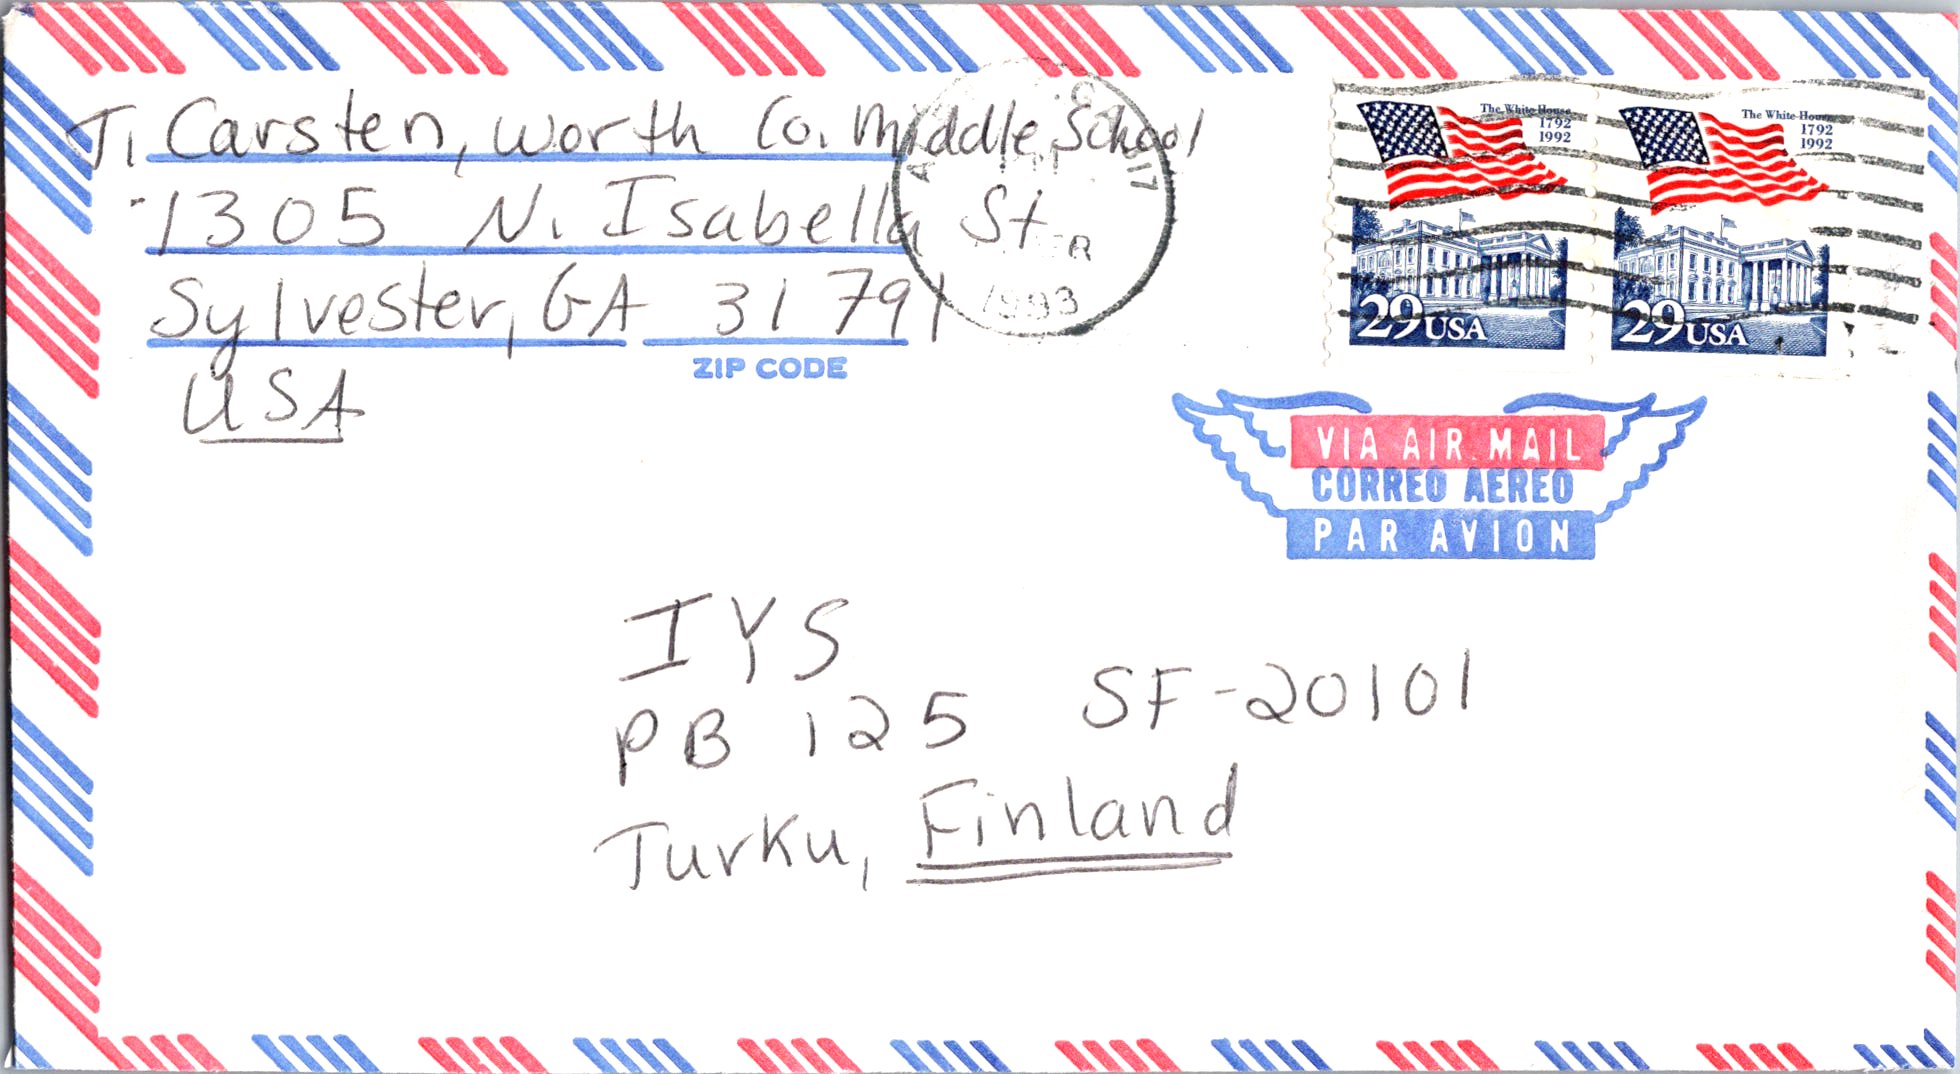 T. Carsten, Worth Co. Middle School
1305 N. Isabella St
Sylvester, GA 31791
ZIP CODE
USA
1993
The White House
1792
1992
29 USA
The White House
1792
1992
29 USA
VIA AIR MAIL
CORREO AEREO
PAR AVION
IYS
PB 125 SF-20101
Turku, Finland